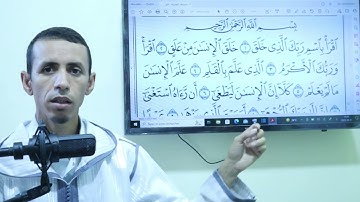 بِسْمِ اللَّهِ الرَّحْمَٰنِ الرَّحِيمِ
اقْرَأْ بِاسْمِ رَبِّكَ الَّذِي خَلَقَ ١ خَلَقَ الْإِنسَٰنَ مِنْ عَلَقٍ ٢ اقْرَأْ
وَرَبُّكَ الْأَكْرَمُ ٣ الَّذِي عَلَّمَ بِالْقَلَمِ ٤ عَلَّمَ الْإِنسَٰنَ
مَا لَمْ يَعْلَمْ ٥ كَلَّا إِنَّ الْإِنسَٰنَ لَيَطْغَىٰ ٦ أَن رَّءَاهُ اسْتَغْنَىٰ